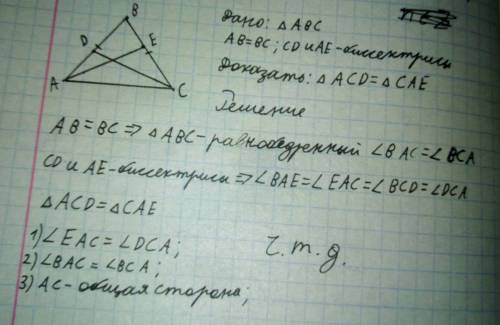 B
D
E
A
C
Дано: △ABC
AB=BC; CD и AE-биссектрисы
Доказать: △ACD=△CAE
Решение
AB=BC⇒△ABC-равнобедренный ∠BAC=∠BCA
CD и AE-биссектрисы⇒∠BAE=∠EAC=∠BCD=∠DCA
△ACD=△CAE
1)∠EAC=∠DCA;
2)∠BAC=∠BCA;
3)AC-общая сторона;
Ч.т.д.